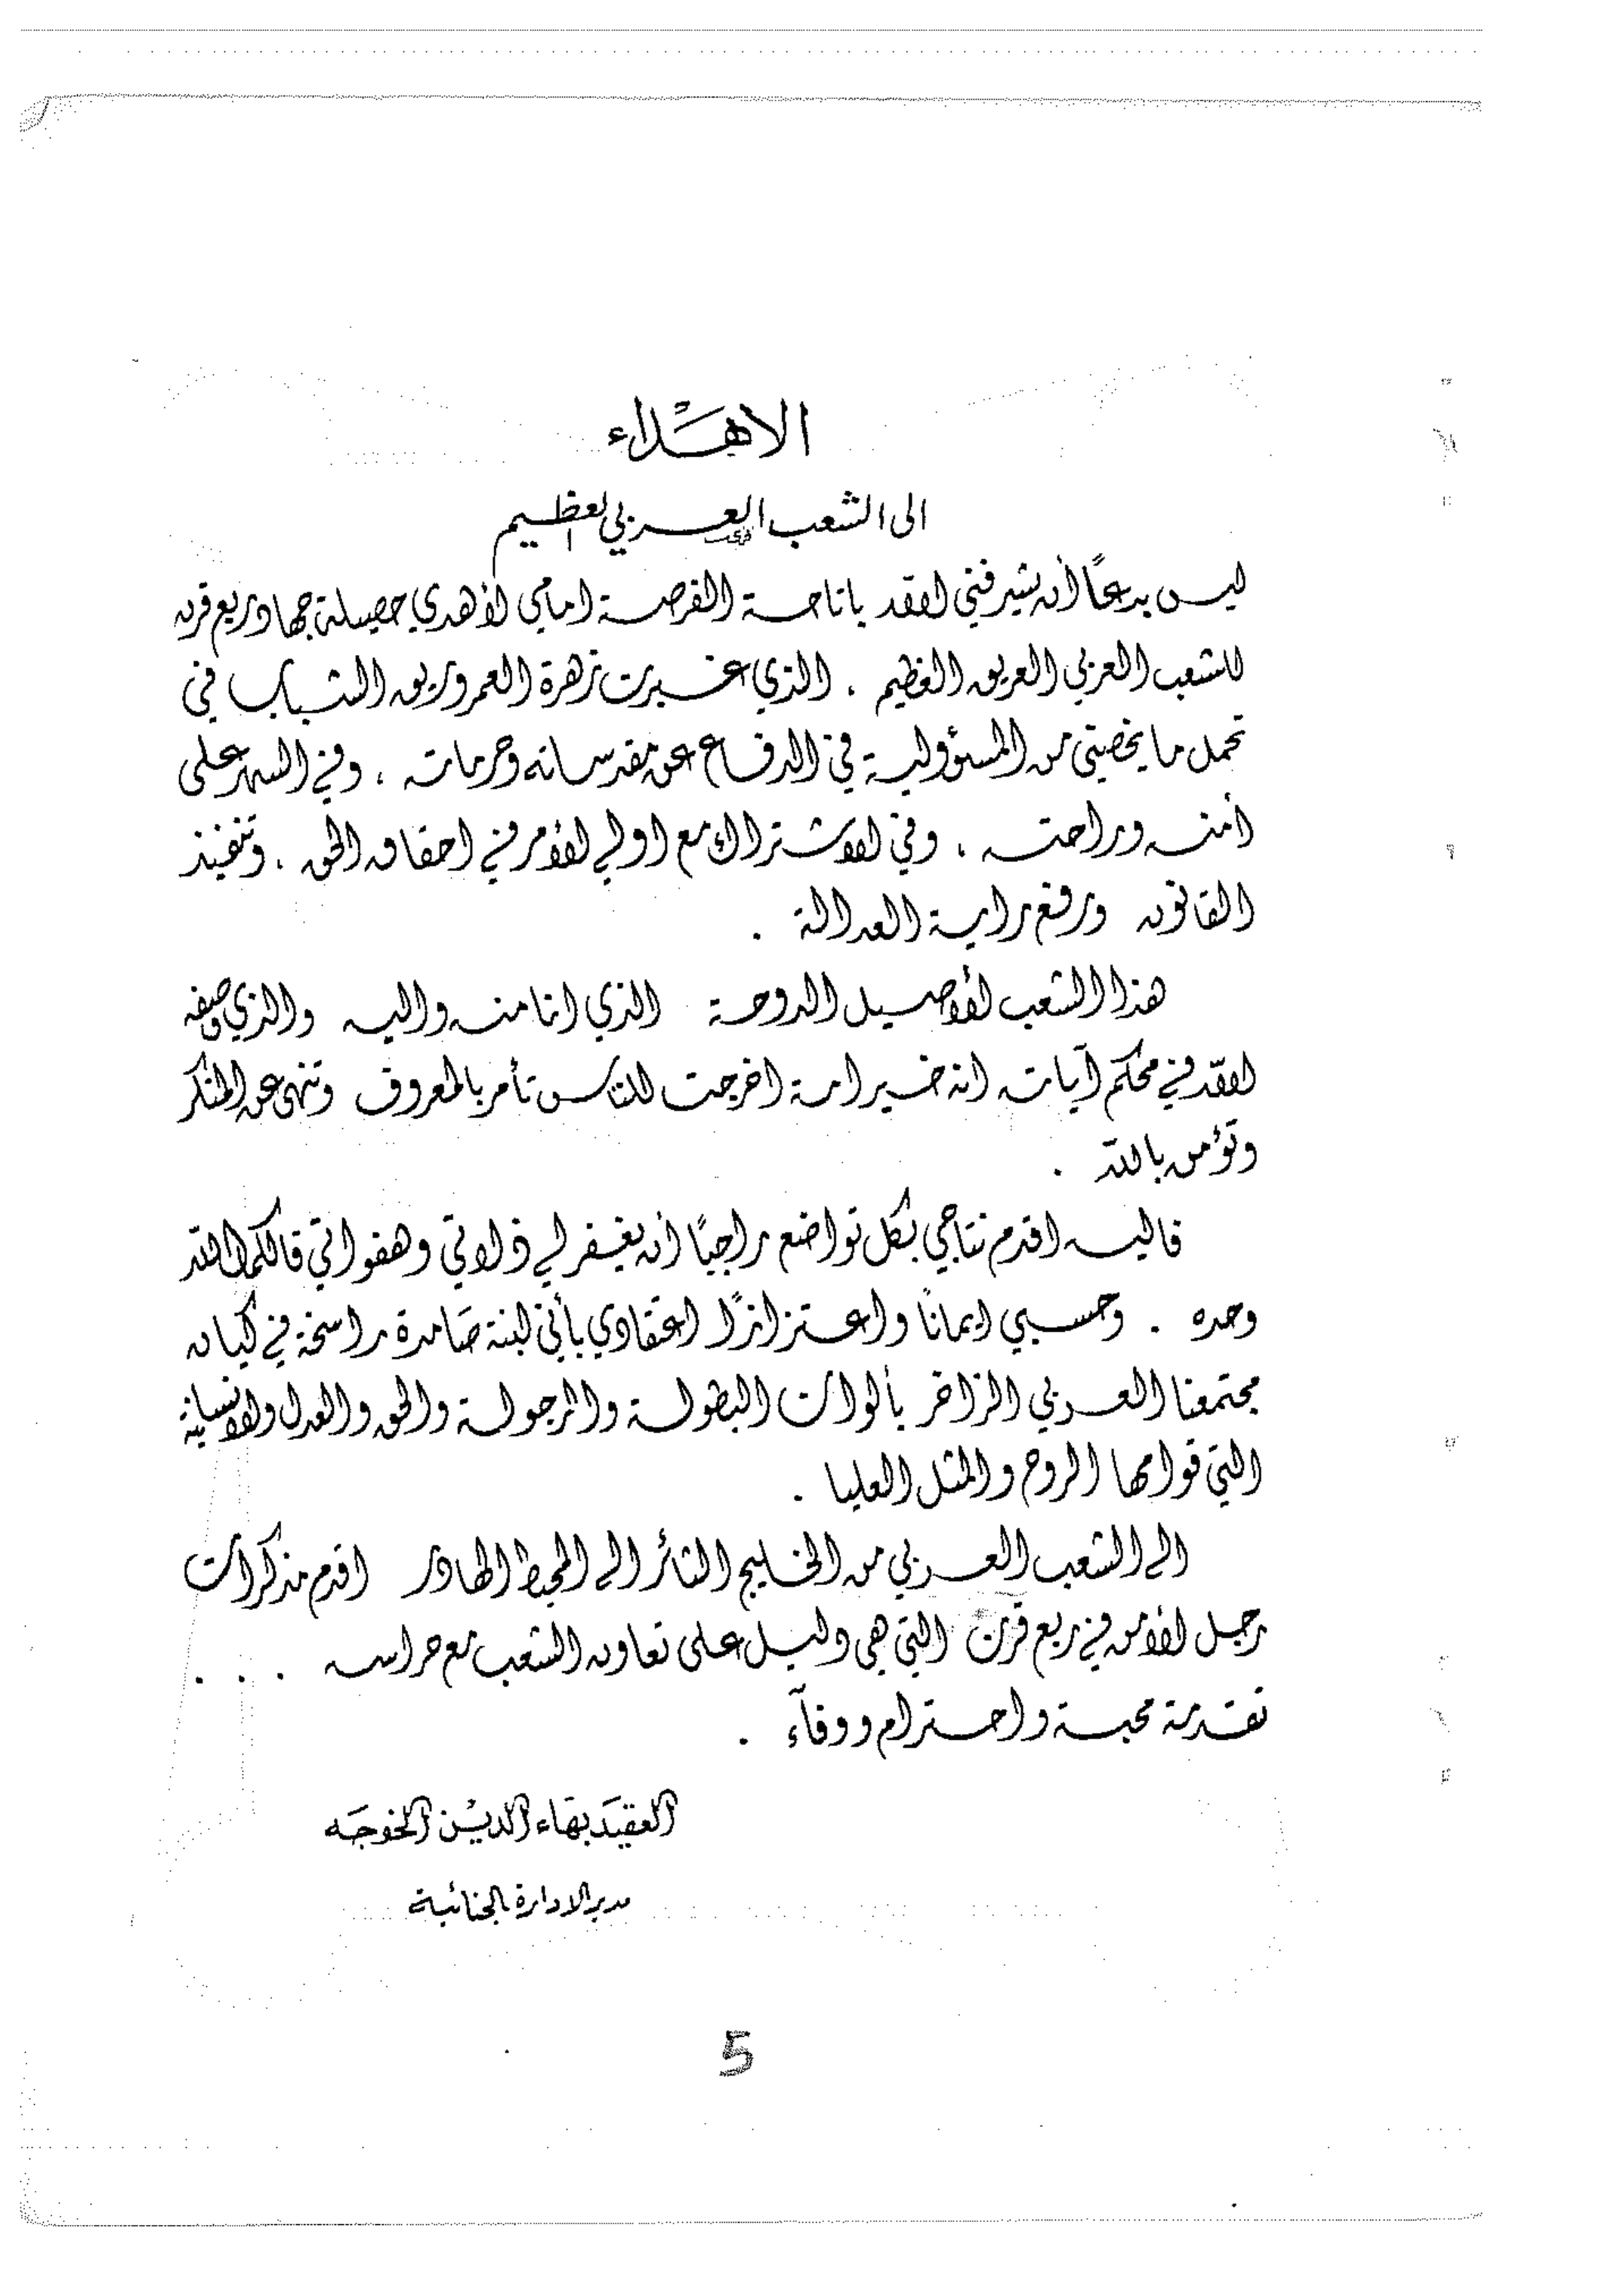 الاهداء
الى الشعب العربي العظيم
ليس بدعًا أن يشرفني الله باتاحة الفرصة امامي لأهدي حصيلة جهاد ربع قرن
للشعب العربي العريق العظيم ، الذي غبرت زهرة العمر وريق الشباب في
تحمل ما يخصني من المسؤولية في الدفاع عن مقدساته وحرماته ، وفي السهر على
أمنه وراحته ، وفي الاشتراك مع اولي الأمر في احقاق الحق ، وتنفيذ
القانون ورفع راية العدالة .
هذا الشعب الأصيل الدوحة الذي انا منه واليه والذي وصفه
الله في محكم آياته انه خير امة اخرجت للناس تأمر بالمعروف وتنهى عن المنكر
وتؤمن بالله .
فاليه اقدم نتاجي بكل تواضع راجيًا أن يغفر لي ذلاتي وهفواتي فالكمال لله
وحده . وحسبي ايمانًا واعتزازًا اعتقادي بأني لبنة صامدة راسخة في كيان
مجتمعنا العربي الزاخر بألوان البطولة والرجولة والحق والعدل والانسانية
التي قوامها الروح والمثل العليا .
الى الشعب العربي من الخليج الثائر الى المحيط الهادر اقدم مذكرات
رجل الأمن في ربع قرن التي هي دليل على تعاون الشعب مع حراسه . . .
تقدمة محبة واحترام ووفآء .
العقيد بهاء الدين الخوجه
مدير الادارة الجنائية
5